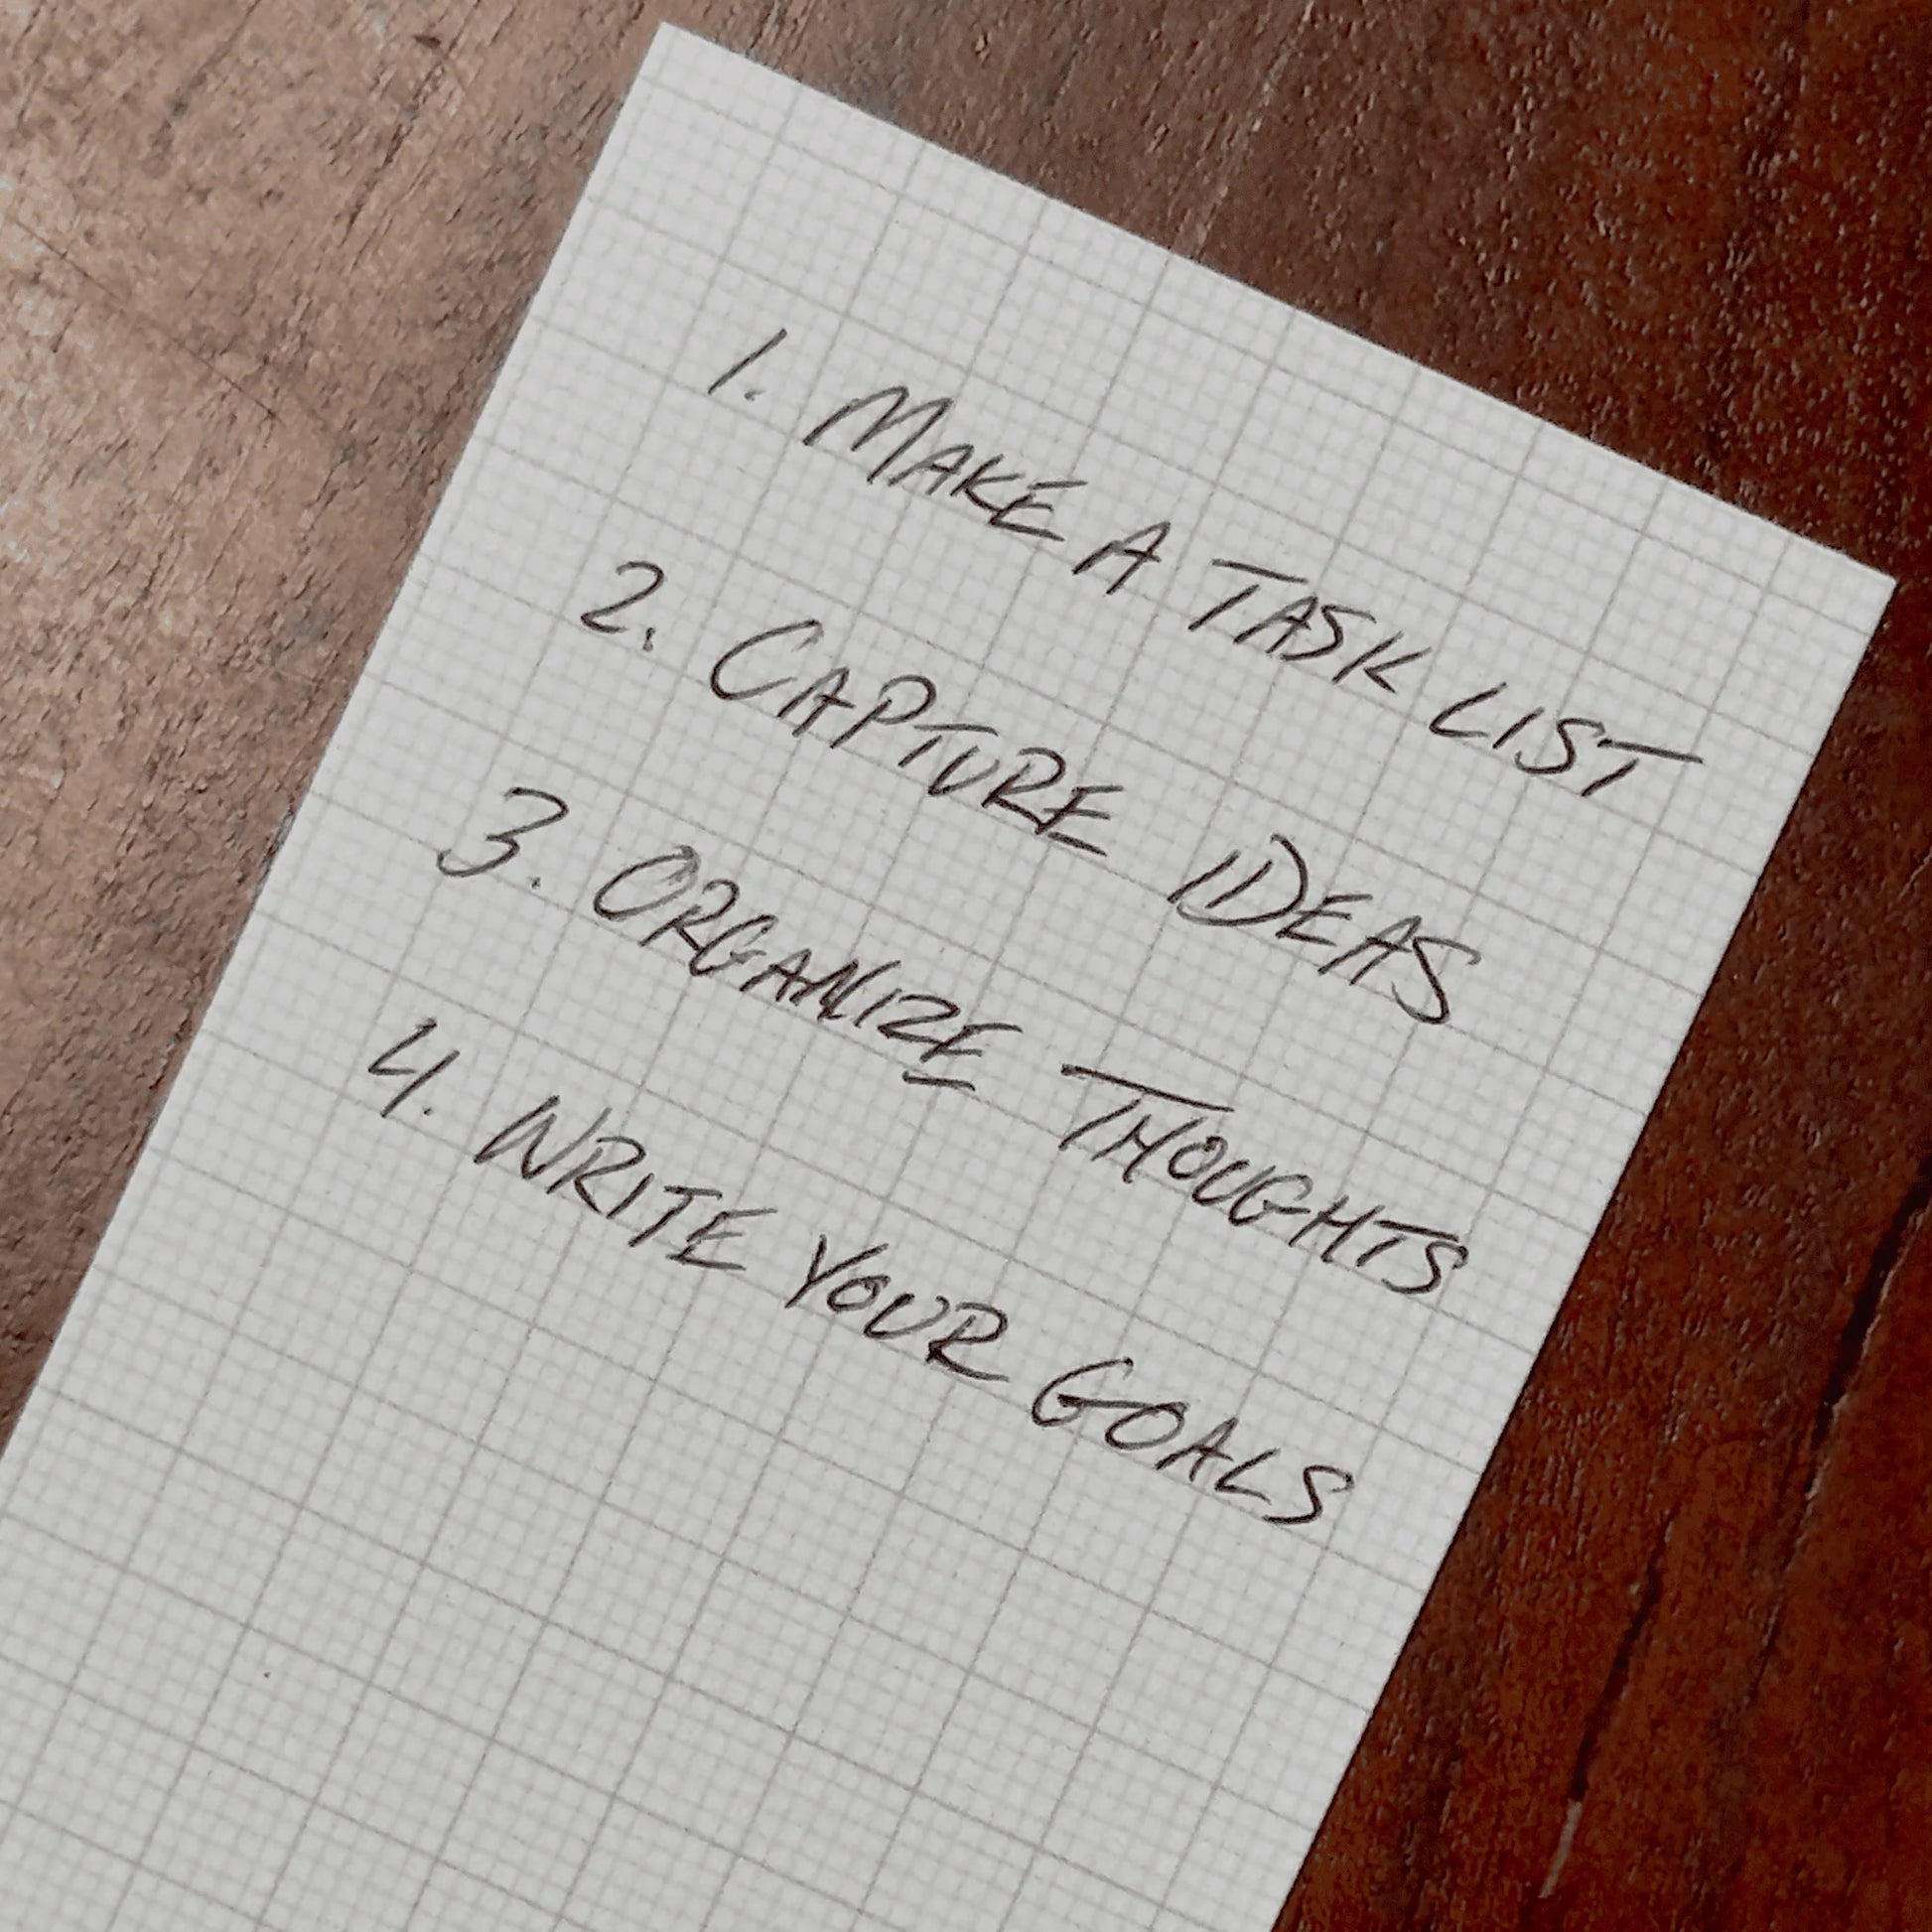 1. MAKE A TASK LIST
2. CAPTURE IDEAS
3. ORGANIZE THOUGHTS
4. WRITE YOUR GOALS